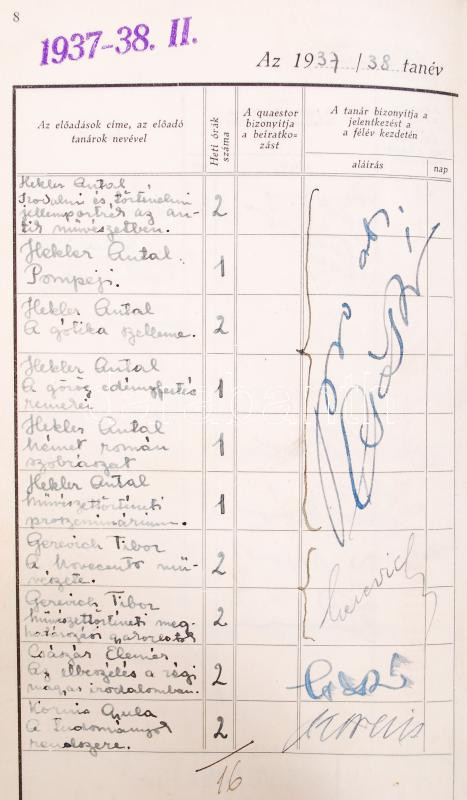 8
1937-38. II.
Az 1937/38 tanév
Az előadások címe, az előadó
tanárok nevével
Heti órák
száma
A quaestor
bizonyítja
a beiratko-
zást
A tanár bizonyítja a
jelentkezést a
a félév kezdetén
aláírás
nap
Hekler Antal
Irodalmi és történelmi
jellemportrék az an-
tik művészetben.
2
Hekler Antal.
Pompeji.
1
Hekler Antal
A gótika szelleme.
2
Hekler Antal
A görög edényfestés
remekei
1
Hekler Antal
Német román
szobrászat
1
Hekler Antal
Művészettörténeti
proszeminárium.
1
Gerevich Tibor
A Novecento mű-
vészete.
2
Gerevich Tibor
Művészettörténeti meg-
határozási gyakorlatok
2
Gerevich
Császár Elemér
Az elbeszélés a régi
magyar irodalomban.
2
Kornis Gyula
A Tudományok
rendszere.
2
Kornis
16